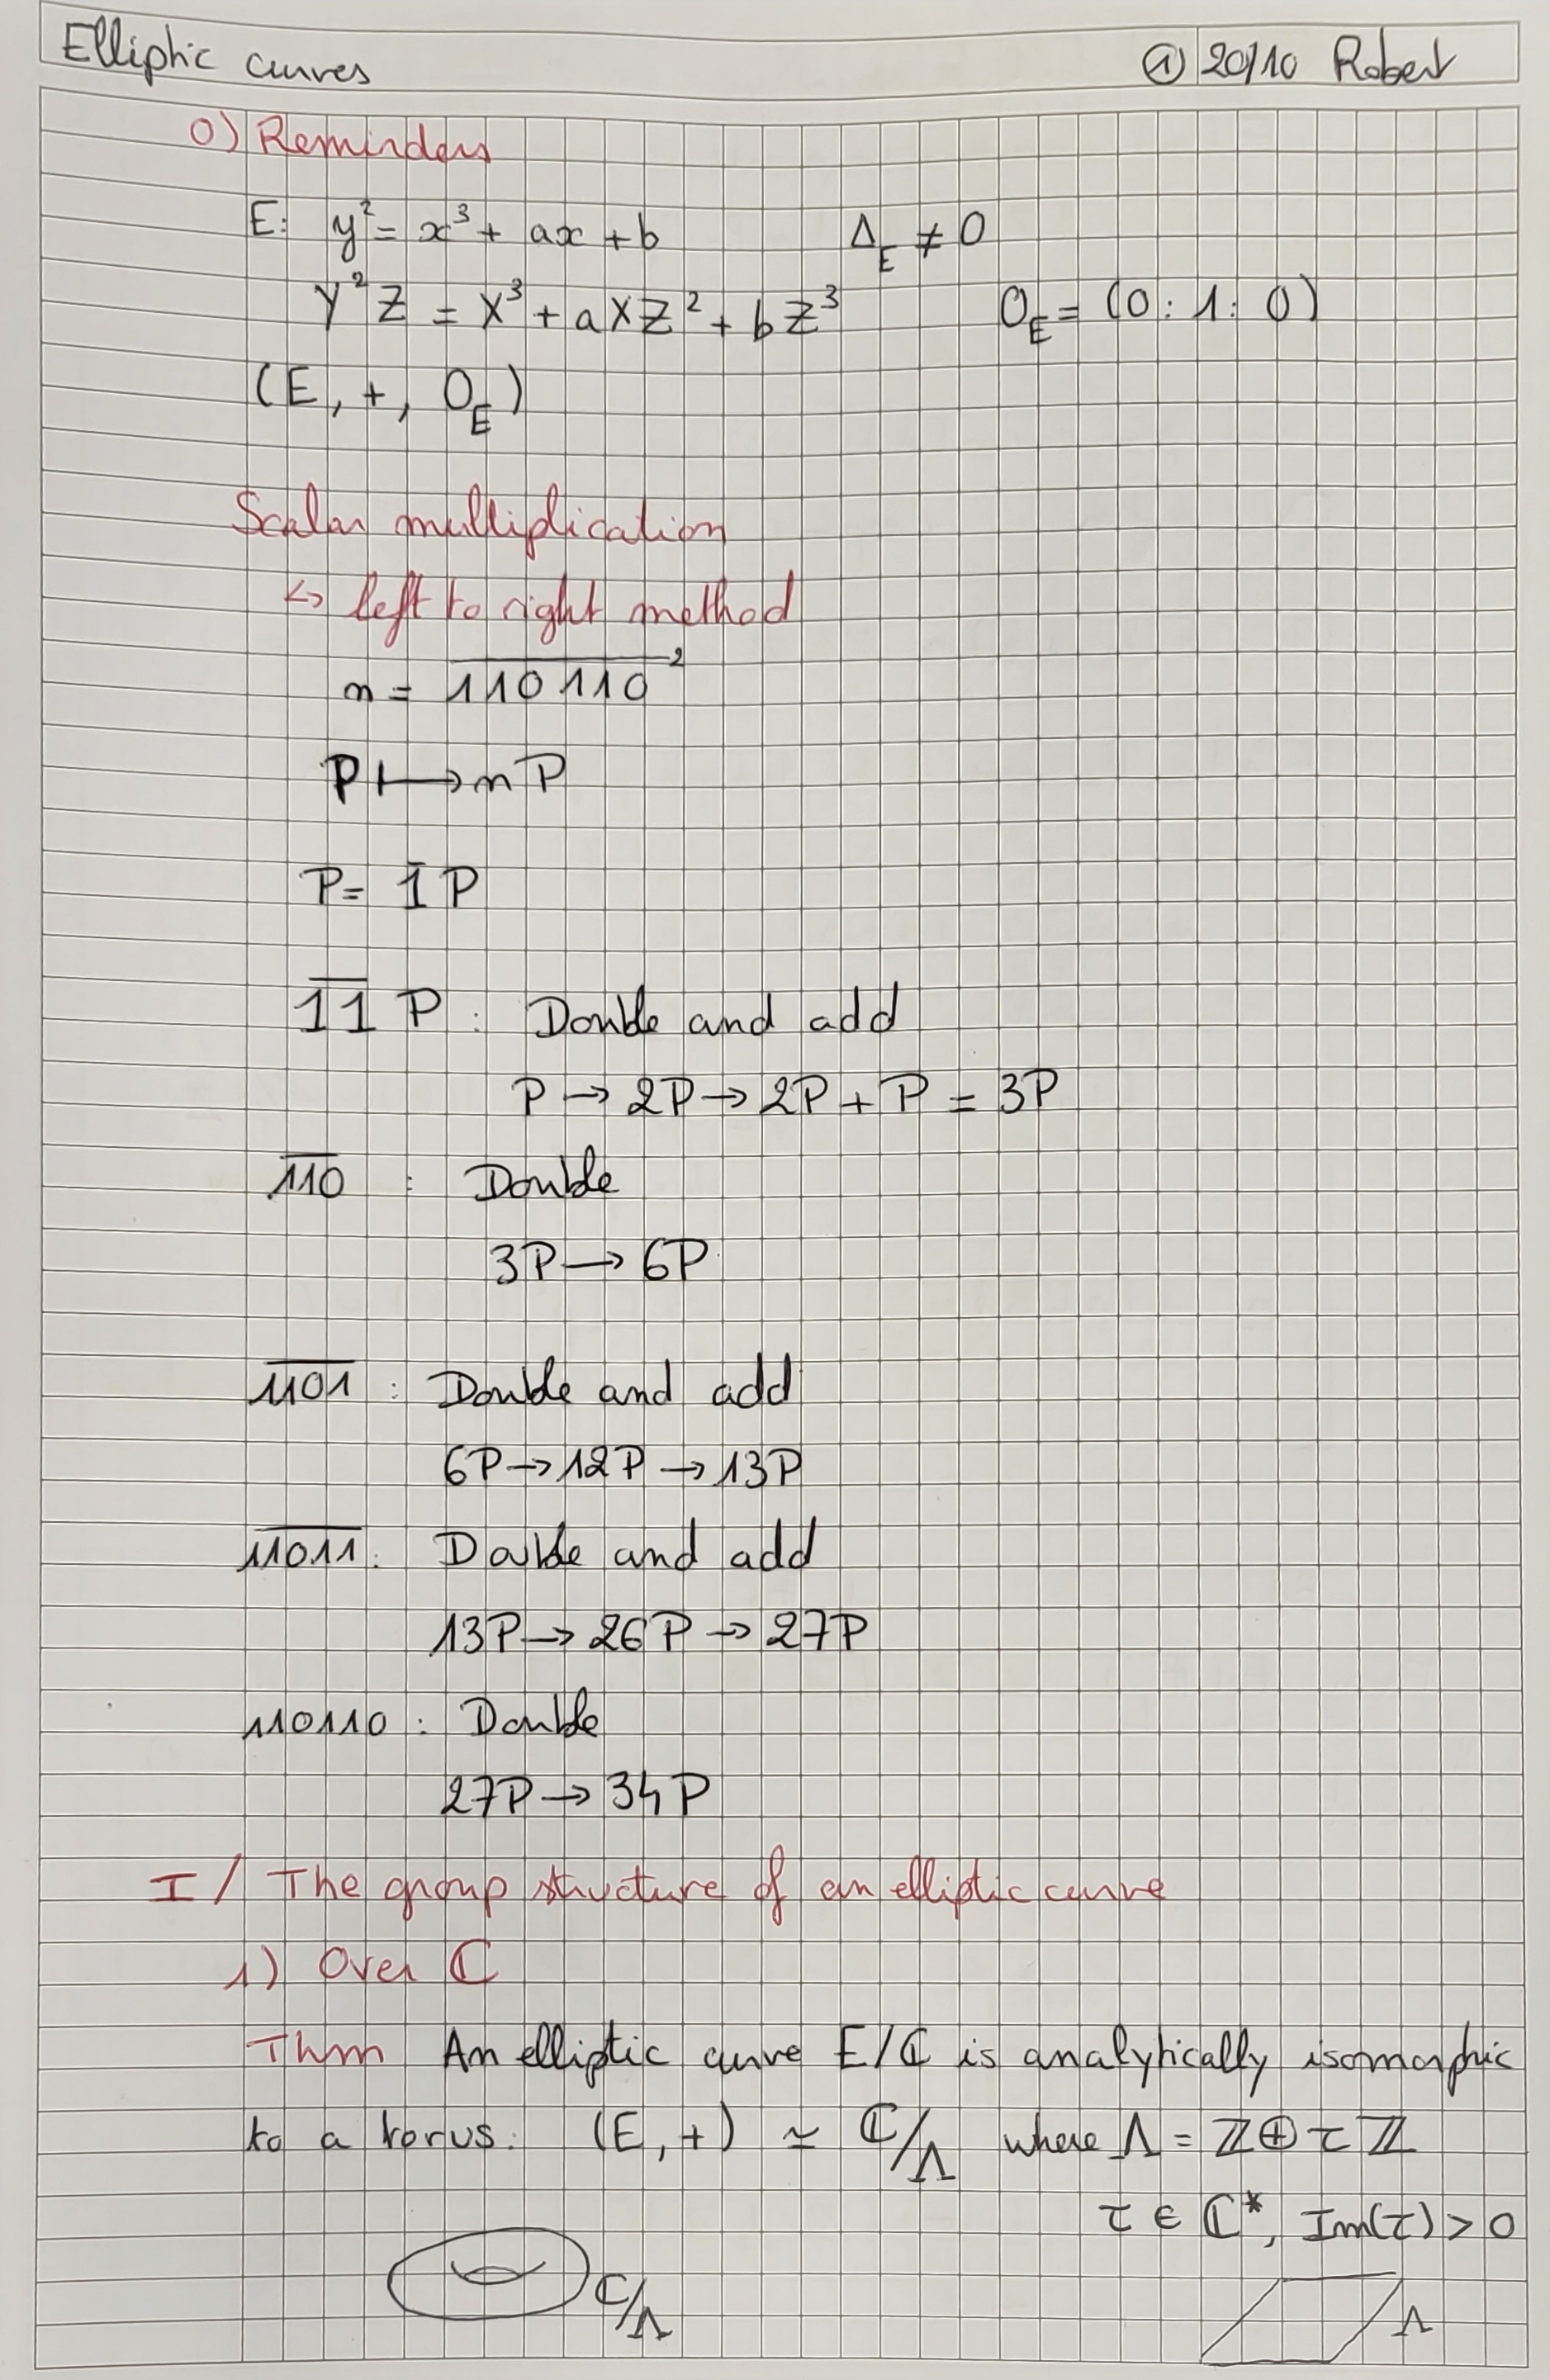 Elliptic curves ① 20/10 Robert
0) Reminders
E: y² = x³ + ax + b Δ_E ≠ 0
Y²Z = X³ + aXZ² + bZ³ 0_E = (0 : 1 : 0)
(E, +, 0_E)
Scalar multiplication
↪ left to right method
n = \overline{110110}²
P ⟼ nP
P = \overline{1} P
\overline{11} P : Double and add
P → 2P → 2P + P = 3P
\overline{110} : Double
3P → 6P
\overline{1101} : Double and add
6P → 12P → 13P
\overline{11011} : Double and add
13P → 26P → 27P
110110 : Double
27P → 34P
I / The group structure of an elliptic curve
1) Over ℂ
Thm An elliptic curve E/ℂ is analytically isomorphic
to a torus: (E, +) ≃ ℂ/Λ where Λ = ℤ ⊕ τℤ
τ ∈ ℂ*, Im(τ) > 0
ℂ/Λ Λ